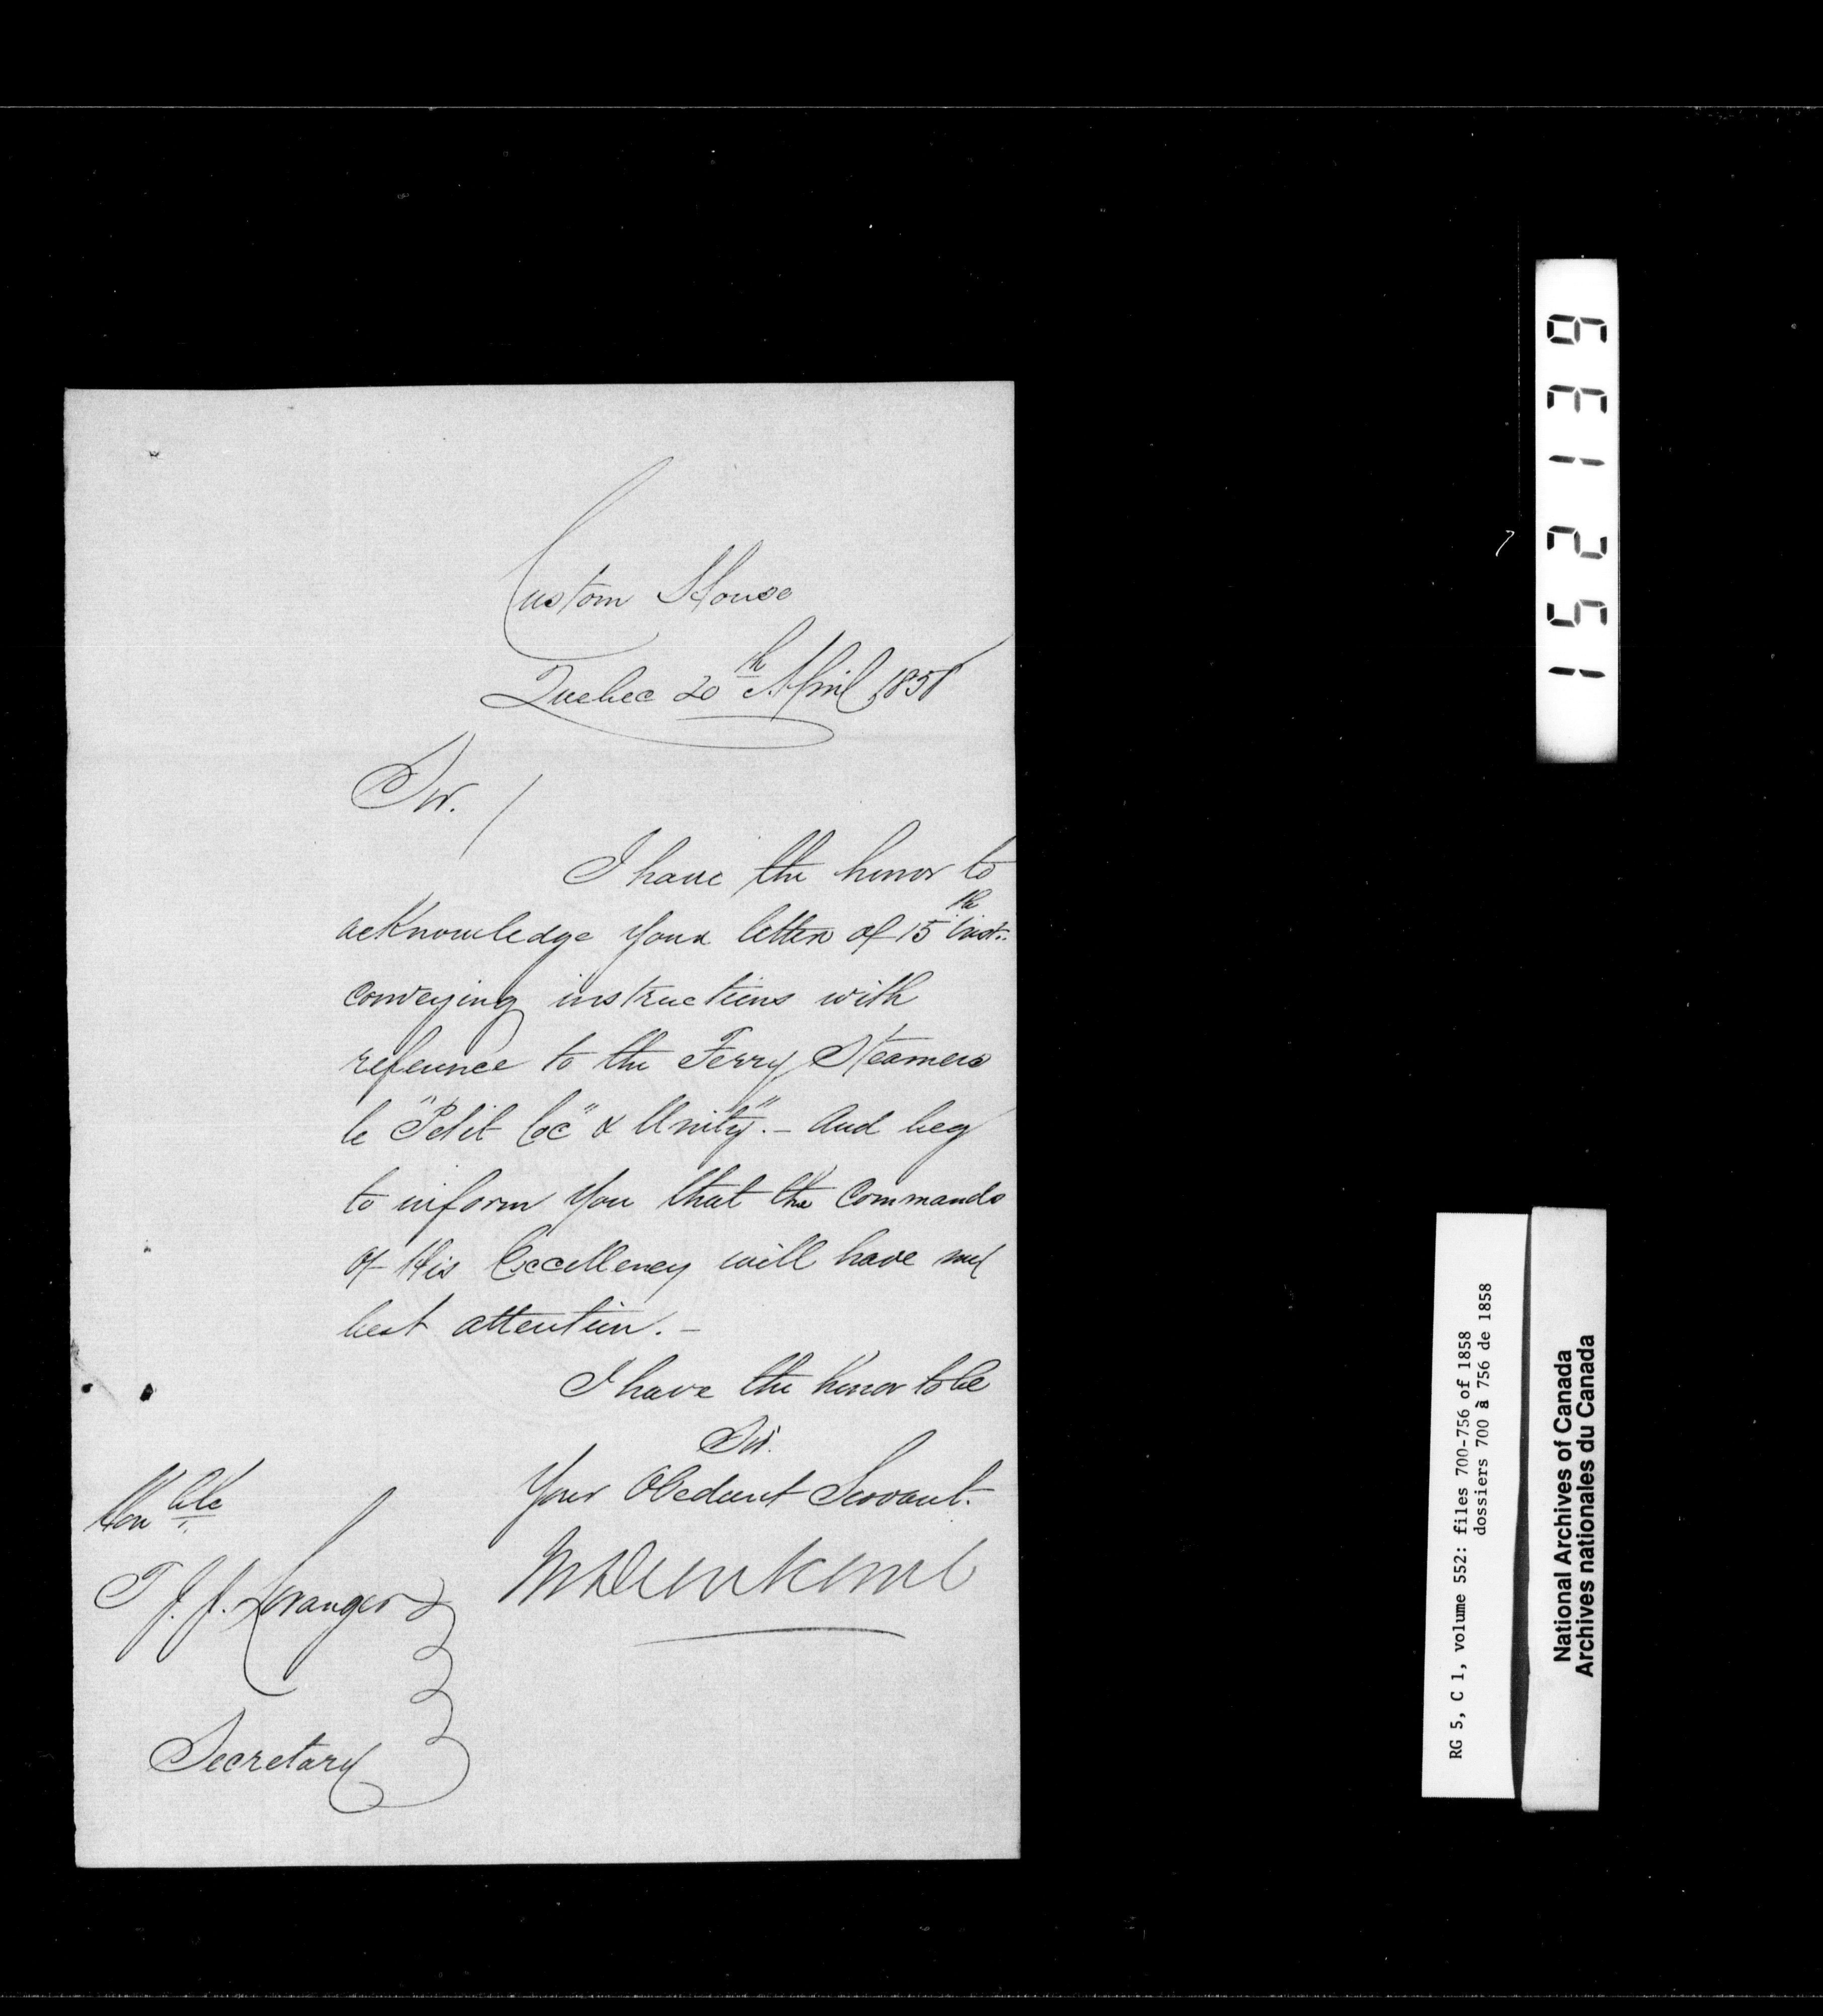 Custom House
Quebec 20th April 1858
Sir. /
I have the honor to
acknowledge your letter of 15th inst:
conveying instructions with
reference to the Ferry Steamers
le "Petit Coc" & Unity". - And beg
to inform you that the Commands
of His Excellency will have my
best attention. -
I have the honor to be
Sir.
Your Obedient Servant.
Honble
T. J. J. Loranger
Secretary
152139
RG 5, C 1, volume 552: files 700-756 of 1858
dossiers 700 à 756 de 1858
National Archives of Canada
Archives nationales du Canada